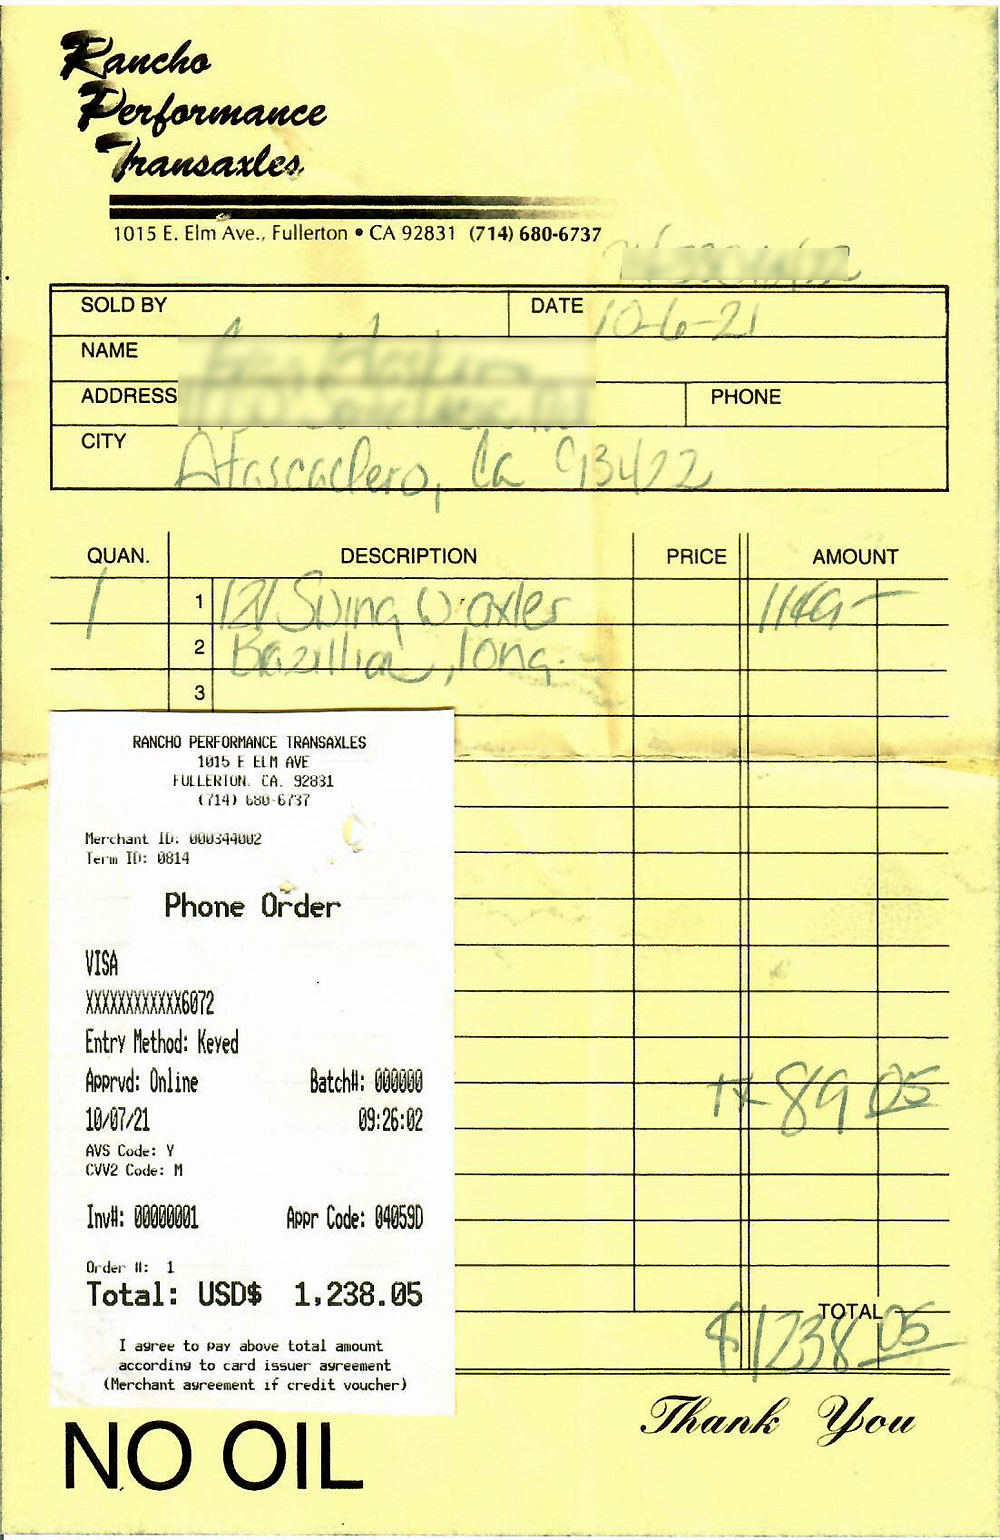 Rancho
Performance
Transaxles
1015 E. Elm Ave., Fullerton • CA 92831 (714) 680-6737
SOLD BY
DATE 10-6-21
NAME
ADDRESS
PHONE
CITY Atascadero, Ca 93422
QUAN. DESCRIPTION PRICE AMOUNT
1 1 Swing w axles 1149-
2 Brazillian, long
3
RANCHO PERFORMANCE TRANSAXLES
1015 E ELM AVE
FULLERTON. CA. 92831
(714) 680-6737
Merchant ID: 000344002
Term ID: 0814
Phone Order
VISA
XXXXXXXXXXXX6072
Entry Method: Keyed
Apprvd: Online Batch#: 000000
10/07/21 09:26:02
AVS Code: Y
CVV2 Code: M
Inv#: 00000001 Appr Code: 04059D
Order #: 1
Total: USD$ 1,238.05
I agree to pay above total amount
according to card issuer agreement
(Merchant agreement if credit voucher)
tx 89 05
TOTAL
$1238 05
Thank You
NO OIL